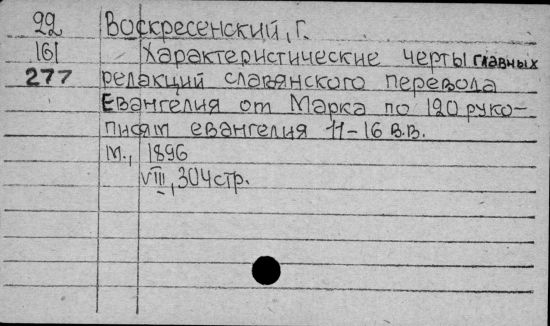 22 Воскресенский, Г.
161 Характеристические черты главных
277 редакций славянского перевода
Евангелия от Марка по 120 руко-
писям евангелия 11-16 в.в.
М., 1896
VIII, 304 стр.